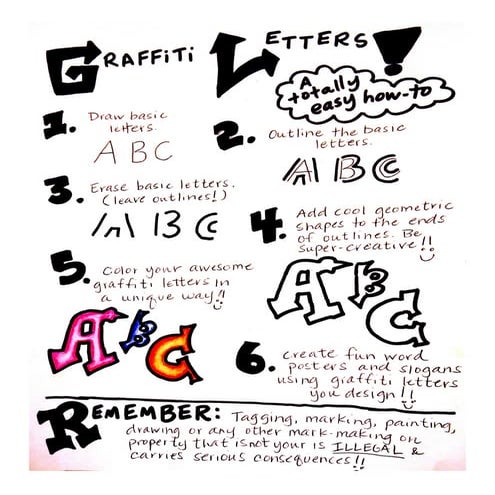 GRAFFITI LETTERS!
A
totally
easy how-to
1. Draw basic
letters.
A B C
2. Outline the basic
letters.
A B C
3. Erase basic letters.
(leave outlines!)
A B C
4. Add cool geometric
shapes to the ends
of outlines. Be
super-creative!!
A B C
5. Color your awesome
graffiti letters in
a unique way!!
A B C
6. create fun word
posters and slogans
using graffiti letters
you design!!
REMEMBER: Tagging, marking, painting,
drawing or any other mark-making on
property that is not your is ILLEGAL &
carries serious consequences!!